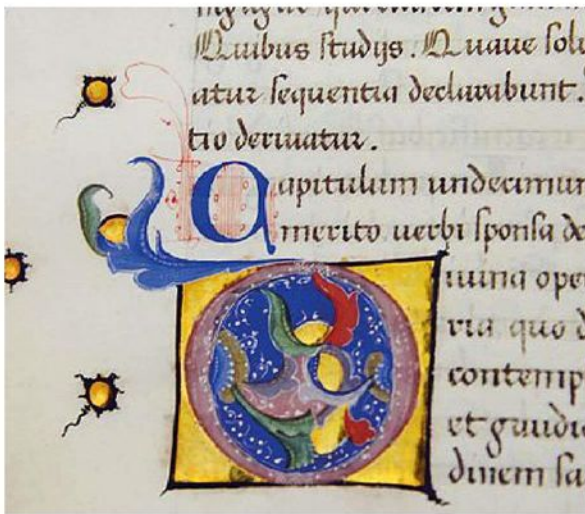 Quibus studijs. Quave solu
atur sequentia declarabunt.
tio deriuatur.
Capitulum undecimum
merito uerbi sponsa de
Diuina ope
ria quo d
contemp
et gaudi
dinem sa